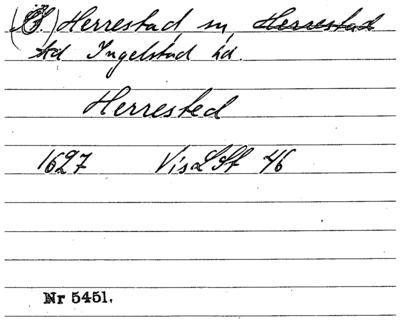 (Ö.) Herrestad sn Herrestad
Ingelstad hd.
Herrested
1627 VisLSt 46
Nr 5451.